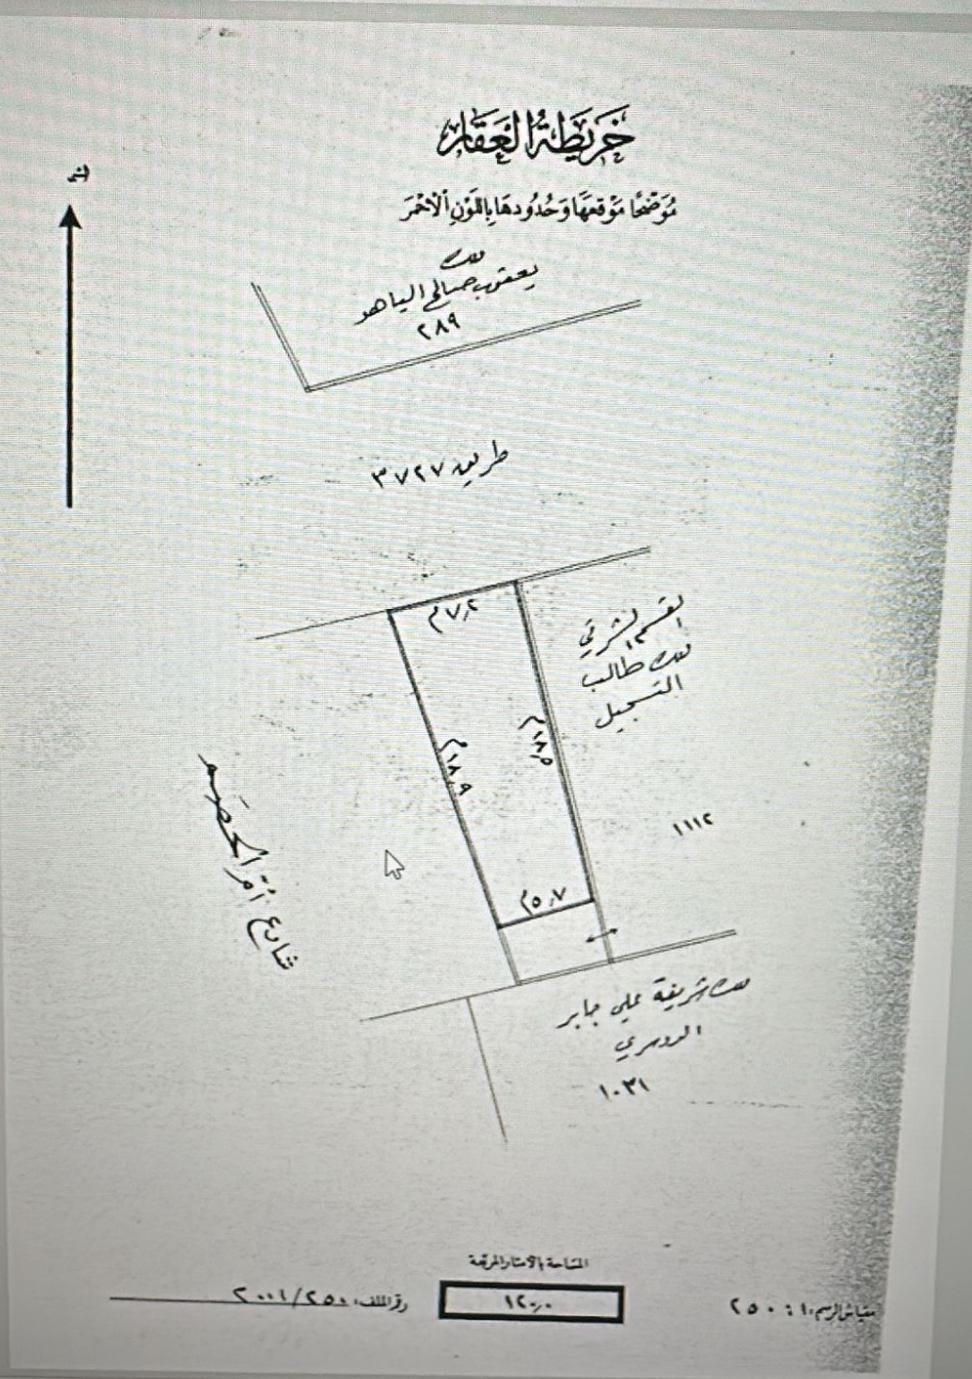 خريطة العقار
موضحًا موقعها وحدودها باللون الأحمر
ملك
يعقوب صالح الياهو
٢٨٩
طريق ٣٧٢٧
٧٫٢م
القسم الشرقي
ملك طالب
التسجيل
١٨٫٥م
١٨٫٩م
١١١٢
شارع أم الحصم
٥٫٧م
ملك شريفة علي جابر
الدوسري
١٠٣١
المساحة بالأمتار المربعة
١٢٠٫٠
مقياس الرسم: ١ : ٢٥٠
رقم الملف: